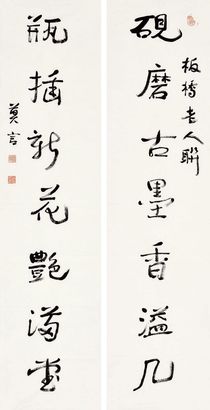 硯磨古墨香溢几
板橋老人聯
瓶插新花艷滿堂
莫言